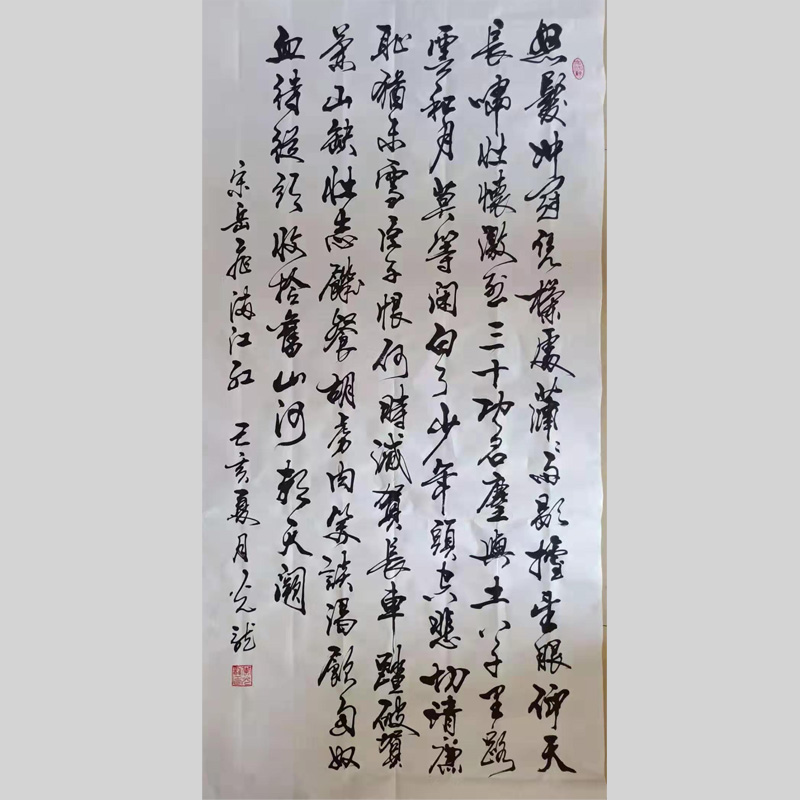 怒髮冲冠凭欄處瀟〻雨歇擡望眼仰天
長嘯壯懷激烈三十功名塵與土八千里路
雲和月莫等闲白了少年頭空悲切靖康
恥猶未雪臣子恨何時滅駕長車踏破賀
蘭山缺壯志飢餐胡虜肉笑談渴飲匈奴
血待從頭收拾舊山河朝天闕
宋岳飛滿江紅 己亥夏月光龍